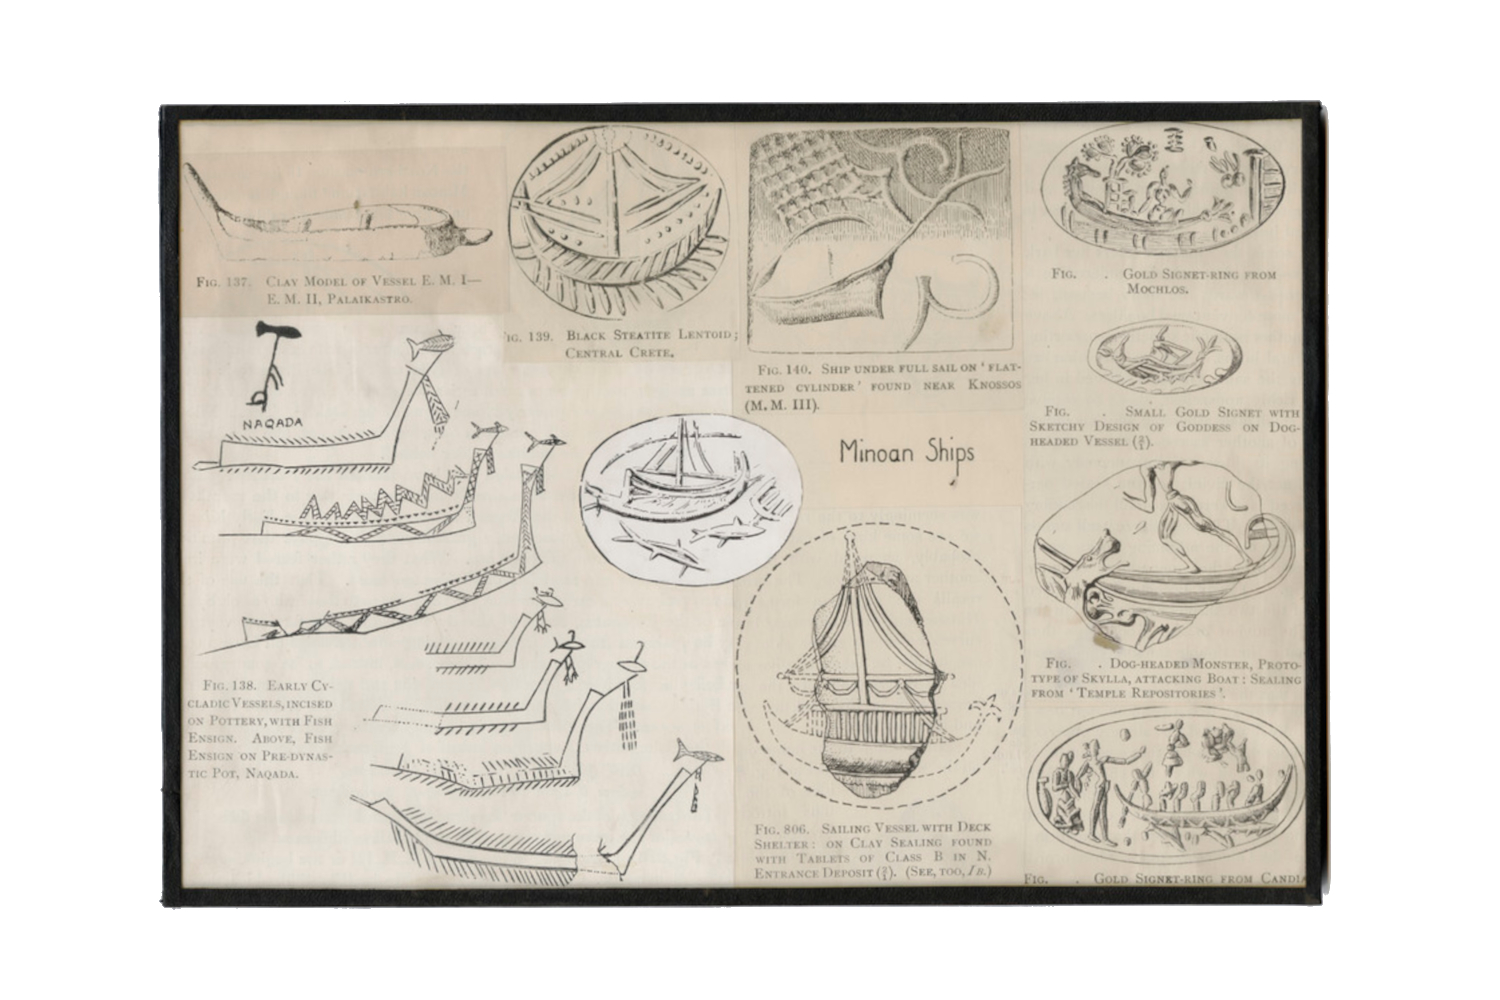 FIG. 137. CLAY MODEL OF VESSEL E. M. I—
E. M. II, PALAIKASTRO.
IG. 139. BLACK STEATITE LENTOID;
CENTRAL CRETE.
FIG. 140. SHIP UNDER FULL SAIL ON ‘FLAT-
TENED CYLINDER’ FOUND NEAR KNOSSOS
(M. M. III).
FIG. . GOLD SIGNET-RING FROM
MOCHLOS.
FIG. . SMALL GOLD SIGNET WITH
SKETCHY DESIGN OF GODDESS ON DOG-
HEADED VESSEL (3/2).
NAQADA
Minoan Ships
FIG. 138. EARLY CY-
CLADIC VESSELS, INCISED
ON POTTERY, WITH FISH
ENSIGN. ABOVE, FISH
ENSIGN ON PRE-DYNAS-
TIC POT, NAQADA.
FIG. . DOG-HEADED MONSTER, PROTO-
TYPE OF SKYLLA, ATTACKING BOAT: SEALING
FROM ‘TEMPLE REPOSITORIES’.
FIG. 806. SAILING VESSEL WITH DECK
SHELTER: ON CLAY SEALING FOUND
WITH TABLETS OF CLASS B IN N.
ENTRANCE DEPOSIT. (SEE, TOO, IB.)
FIG. . GOLD SIGNET-RING FROM CANDIA